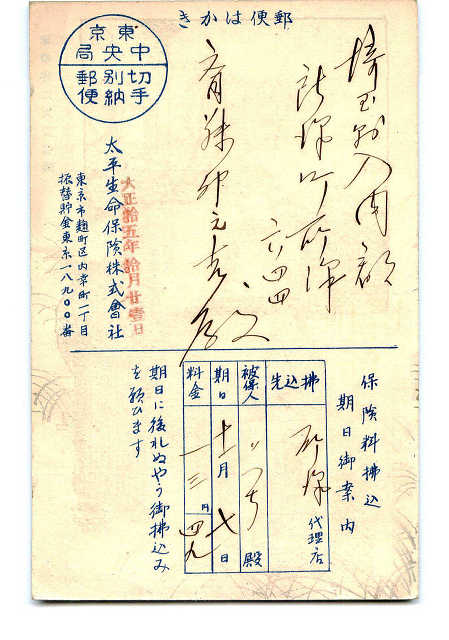 郵便はかき
東京
中央局
切手
別納
郵便
埼玉縣入間郡
所澤町所澤
六四四
殿
大正拾五年拾月廿壹日
太平生命保険株式會社
東京市麹町区内幸町一丁目
振替貯金東京一八九〇〇番
保険料拂込
期日御案内
拂込先
所澤代理店
被保人
殿
期日
十一月七日
料金
一三円四九
期日に後れぬやう御拂込み
を願ひます